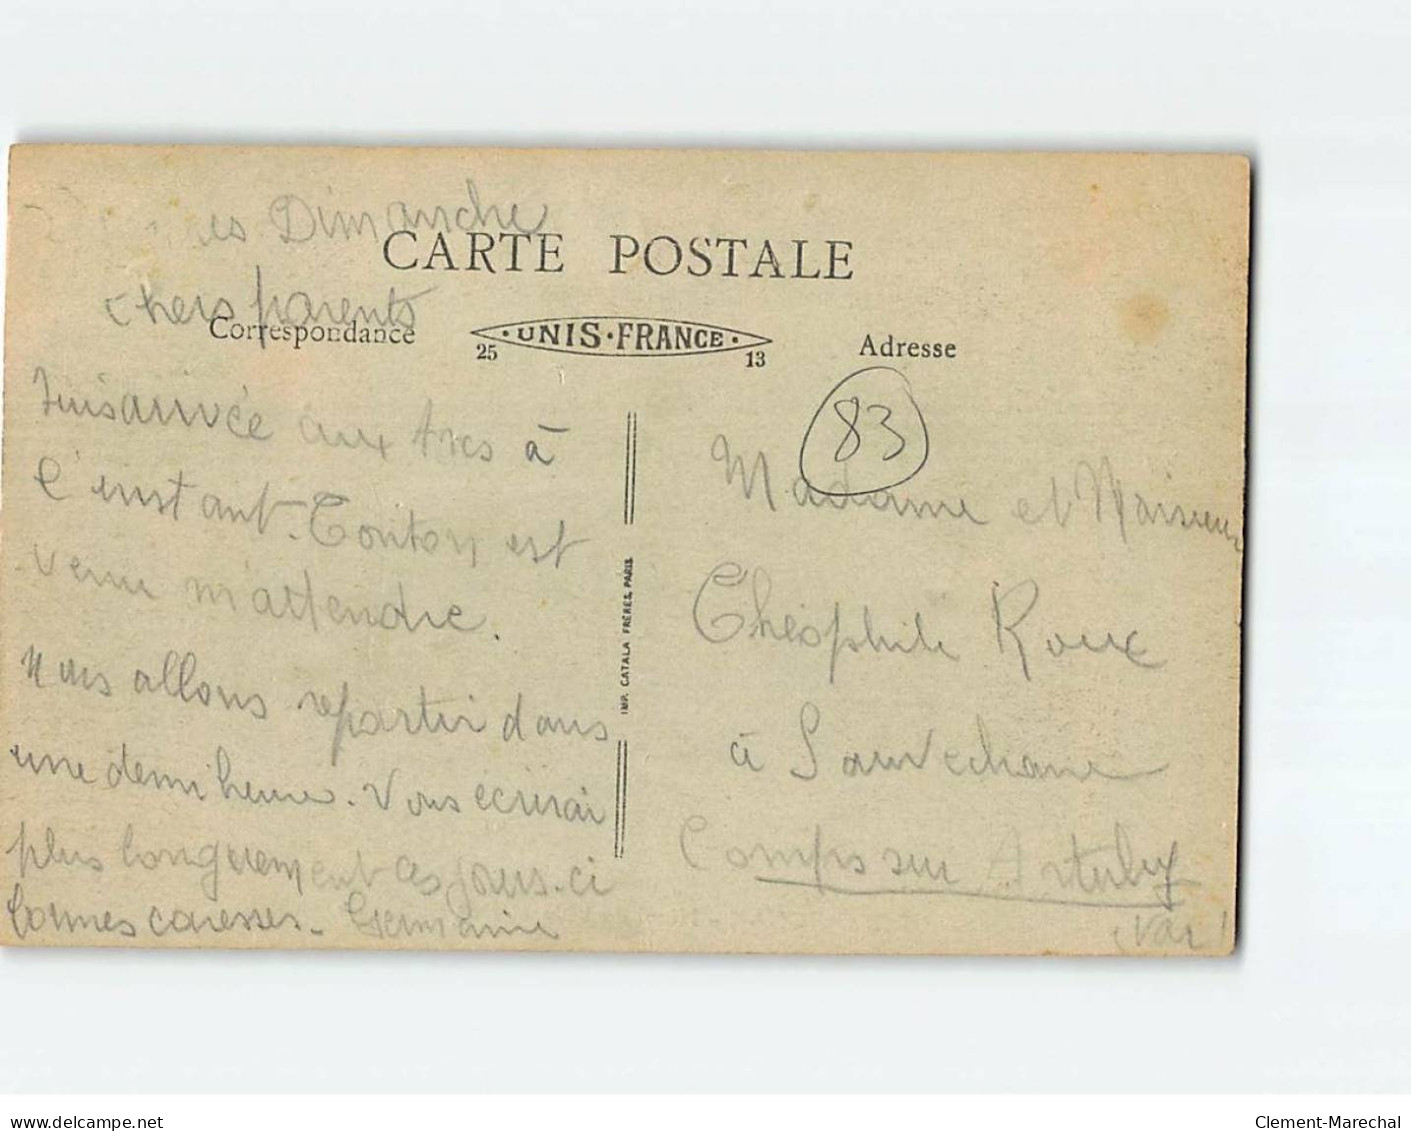 Dimanche
CARTE POSTALE
chers parents
Correspondance
25 · UNIS · FRANCE · 13
Adresse
suis arrivée aux Arcs à
l'instant. Tonton est
venu m'attendre.
Nous allons repartir dans
une demi heure. Vous écrirai
plus longuement ces jours-ci
bonnes caresses. Germaine
IMP. CATALA FRÈRES, PARIS
83
Madame et Monsieur
Théophile Roux
à Sauvechane
Comps sur Artuby
(Var)
www.delcampe.net
Clement-Marechal